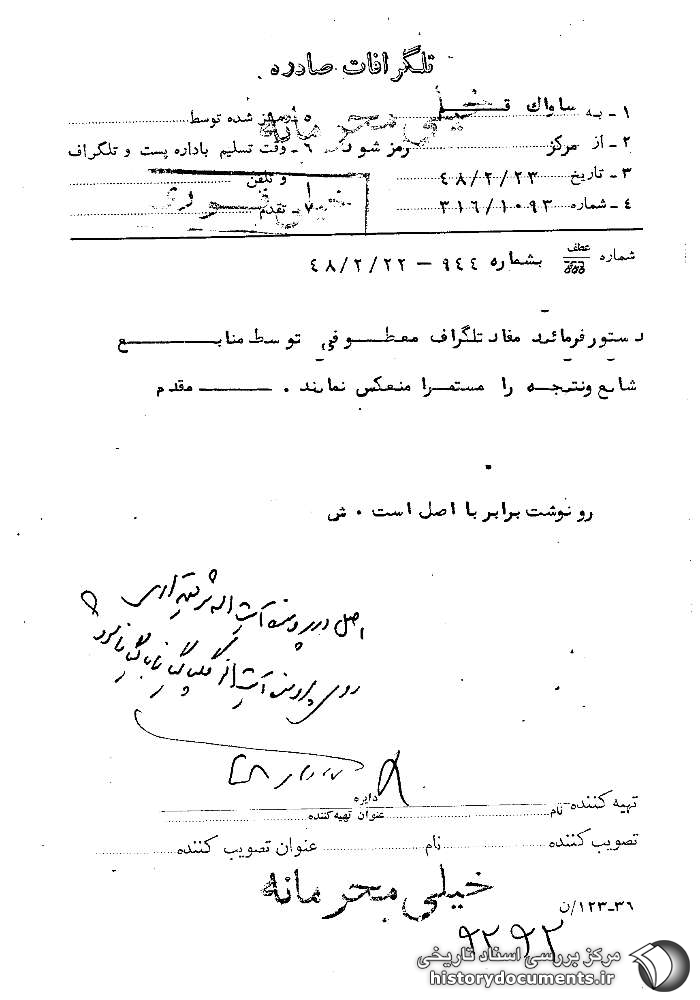 تلگرافات صادره
خیلی محرمانه
۱ - به ساواک قم
۲ - از مرکز رمز شود
۳ - تاریخ ۴۸/۲/۲۳
۴ - شماره ۳۱۶/۱۰۹۳
۵ - رمز شده توسط
۶ - وقت تسلیم باداره پست و تلگراف
و تلفن
۷ - تقدم
خیلی فوری
شماره عطف بشماره ۹۴۴ - ۴۸/۲/۲۲
دستور فرمائید مفاد تلگراف معطوفی توسط منابع
شایع ونتیجه را مستمرا منعکس نمایند . مقدم
رونوشت برابر با اصل است . ش
اصل در پرونده آیت اله شریعتمداری
روی پرونده آیت اله گلپایگانی بایگانی گردد
تهیه کننده نام دایره
عنوان تهیه کننده
تصویب کننده نام عنوان تصویب کننده
خیلی محرمانه
۳۶-۱۲۳/ن
۹۲۹۲
مرکز بررسی اسناد تاریخی
historydocuments.ir